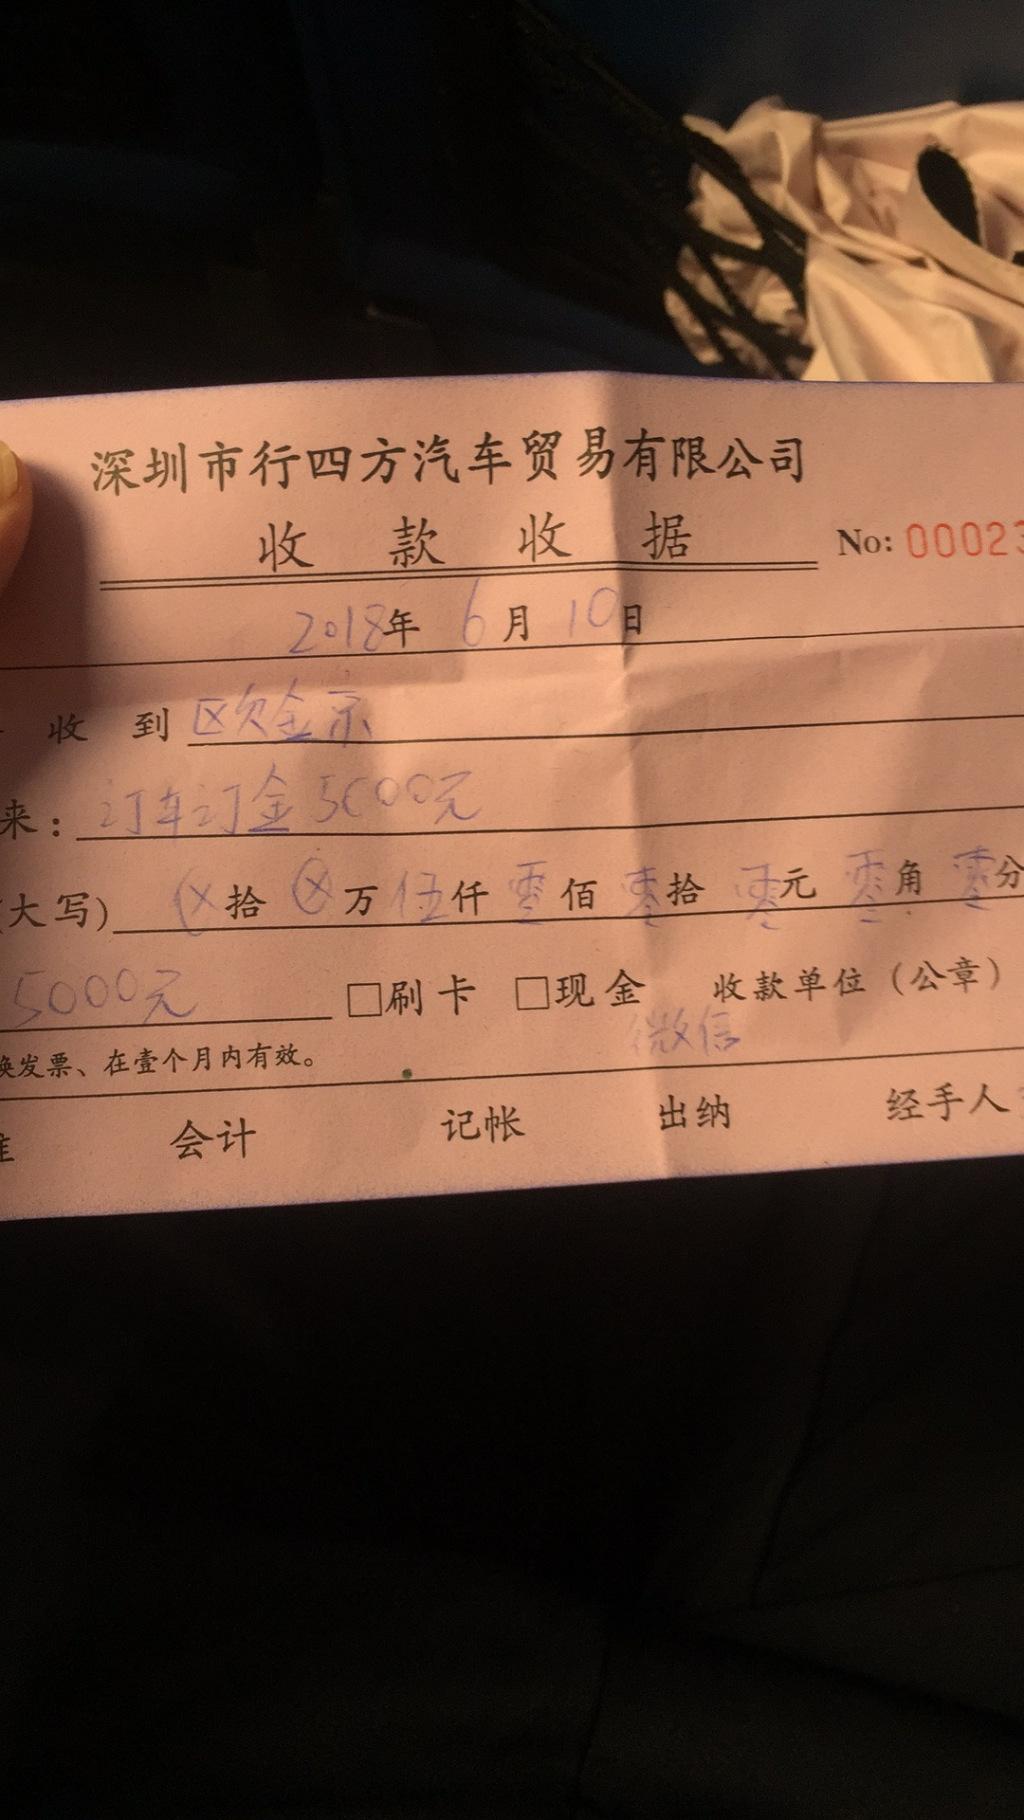 深圳市行四方汽车贸易有限公司
收款收据
No: 00023
2018年 6月 10日
收到 欧金示
来：订车订金5000元
(大写) ⊗拾 ⊗万 伍仟 零佰 零拾 零元 零角 零分
5000元 □刷卡 □现金 收款单位（公章）
微信
换发票、在壹个月内有效。
会计 记帐 出纳 经手人